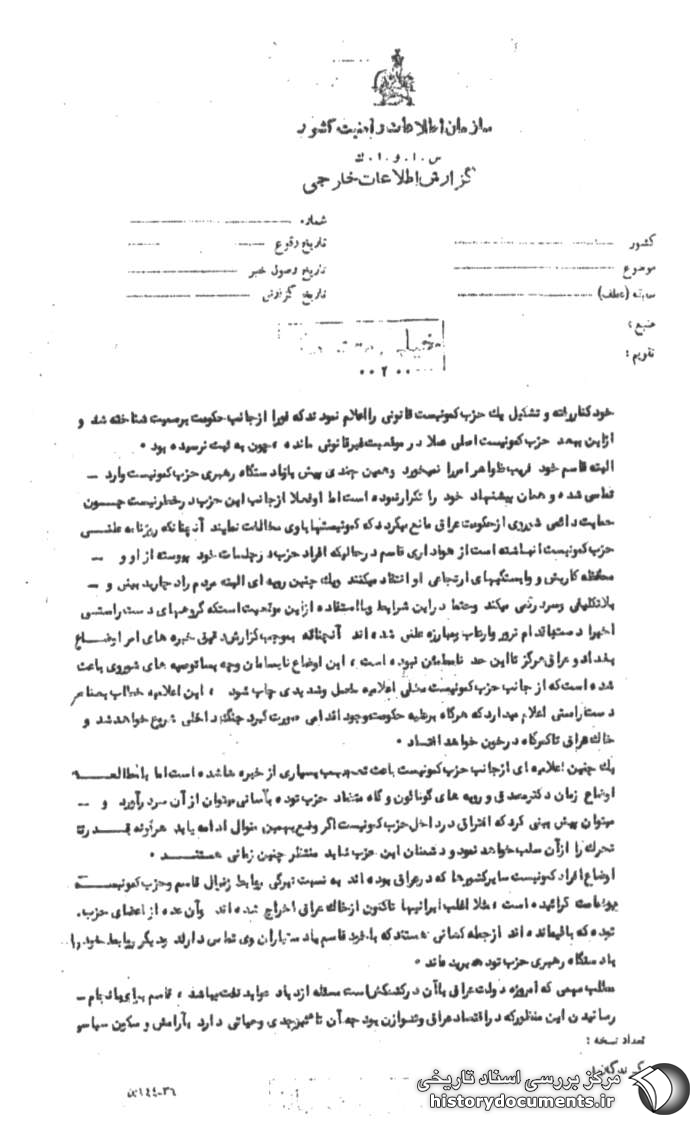 سازمان اطلاعات و امنیت کشور
س . ا . و . ا . ك
گزارش اطلاعات خارجی
شماره
کشور
تاریخ وقوع
موضوع
تاریخ وصول خبر
سابقه (عطف)
تاریخ گزارش
منبع :
تقویم :
خیلی
خود کنار رفته و تشکیل یك حزب کمونیست قانونی را اعلام نمودند که فورا از جانب حکومت برسمیت شناخته شد و
از این ببعد حزب کمونیست اصلی عملا در موقعیت غیرقانونی مانده ، چون به ثبت نرسیده بود .
البته قاسم خود فریب ظواهر امر را نمیخورد وهمین چندی پیش با دستگاه رهبری حزب کمونیست وارد –
تماس شده و همان پیشنهاد خود را تکرار نموده است اما او فعلا از جانب این حزب در خطر نیست چون
حمایت دائمی شوروی از حکومت عراق مانع میگردد که کمونیستها با وی مخالفت نمایند آنچنانکه روزنامه علنی
حزب کمونیست انباشته است از هواداری قاسم در حالیکه افراد حزب در جلسات خود پیوسته از او و –
محافظه کاریش و وابستگیهای ارتجاعی او انتقاد میکنند ویك چنین رویه ای البته مردم را دچار بدبینی و –
بلاتکلیفی وسردرگمی میکند وحتما در این شرایط وبا استفاده از این موقعیت است که گروههای دست راستی
اخیرا دست باقدام ترور وارعاب ومبارزه علنی شده اند آنچنانکه بموجب گزارش دقیق خبره های امر اوضاع
بغداد و عراق هرگز تا این حد نامطمئن نبوده است ، این اوضاع نابسامان وچه بسا توصیه های شوروی باعث
شده است که از جانب حزب کمونیست مخفی اعلامیه مفصل وشدیدی چاپ شود ، این اعلامیه خطاب بعناصر
دست راستی اعلام میدارد که هرگاه برعلیه حکومت وجود اقدامی صورت گیرد جنگ داخلی شروع خواهد شد و
خاك عراق تا کمرگاه در خون خواهد افتاد .
یك چنین اعلامیه ای از جانب حزب کمونیست باعث تعجب بسیاری از خبره ها شده است اما با مطالعه
اوضاع زمان دکتر مصدق و رویه های گوناگون و گاه متضاد حزب توده بآسانی میتوان از آن سر درآورد و –
میتوان پیش بینی کرد که افتراق در داخل حزب کمونیست اگر وضع بهمین منوال ادامه یابد هرگونه قدرت
تحرك را از آن سلب خواهد نمود و دشمنان این حزب شاید منتظر چنین زمانی هستند .
اوضاع افراد کمونیست سایر کشورها که در عراق بوده اند به نسبت تیرگی روابط ژنرال قاسم وحزب کمونیست
بوخامت گرائیده است ، مثلا اغلب ایرانیها تاکنون از خاك عراق اخراج شده اند وآن عده از اعضای حزب
توده که باقیمانده اند از جمله کسانی هستند که با خود قاسم یا دستیاران وی تماس دارند و دیگر روابط خود را
با دستگاه رهبری حزب توده بریده اند .
مطلب مهمی که امروزه دولت عراق با آن در کشمکش است مسئله ازدیاد عواید نفت میباشد ، قاسم برای بانجام –
رسانیدن این منظور که در اقتصاد عراق وتوازن بودجه آن تاثیر جدی وحیاتی دارد بآرامش و سکون سیاسی
تعداد نسخه :
گیرندگان
۳۶-۱۴۴
مرکز بررسی اسناد تاریخی
historydocuments.ir